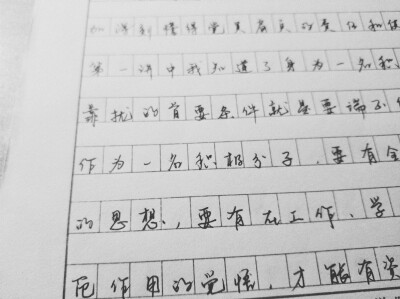 加深刻懂得党员肩负的责任和使
第一讲中我知道了身为一名积
靠拢的首要条件就是要端正
作为一名积极分子,要有全
的思想,要有在工作、学
范作用的觉悟,才能有资